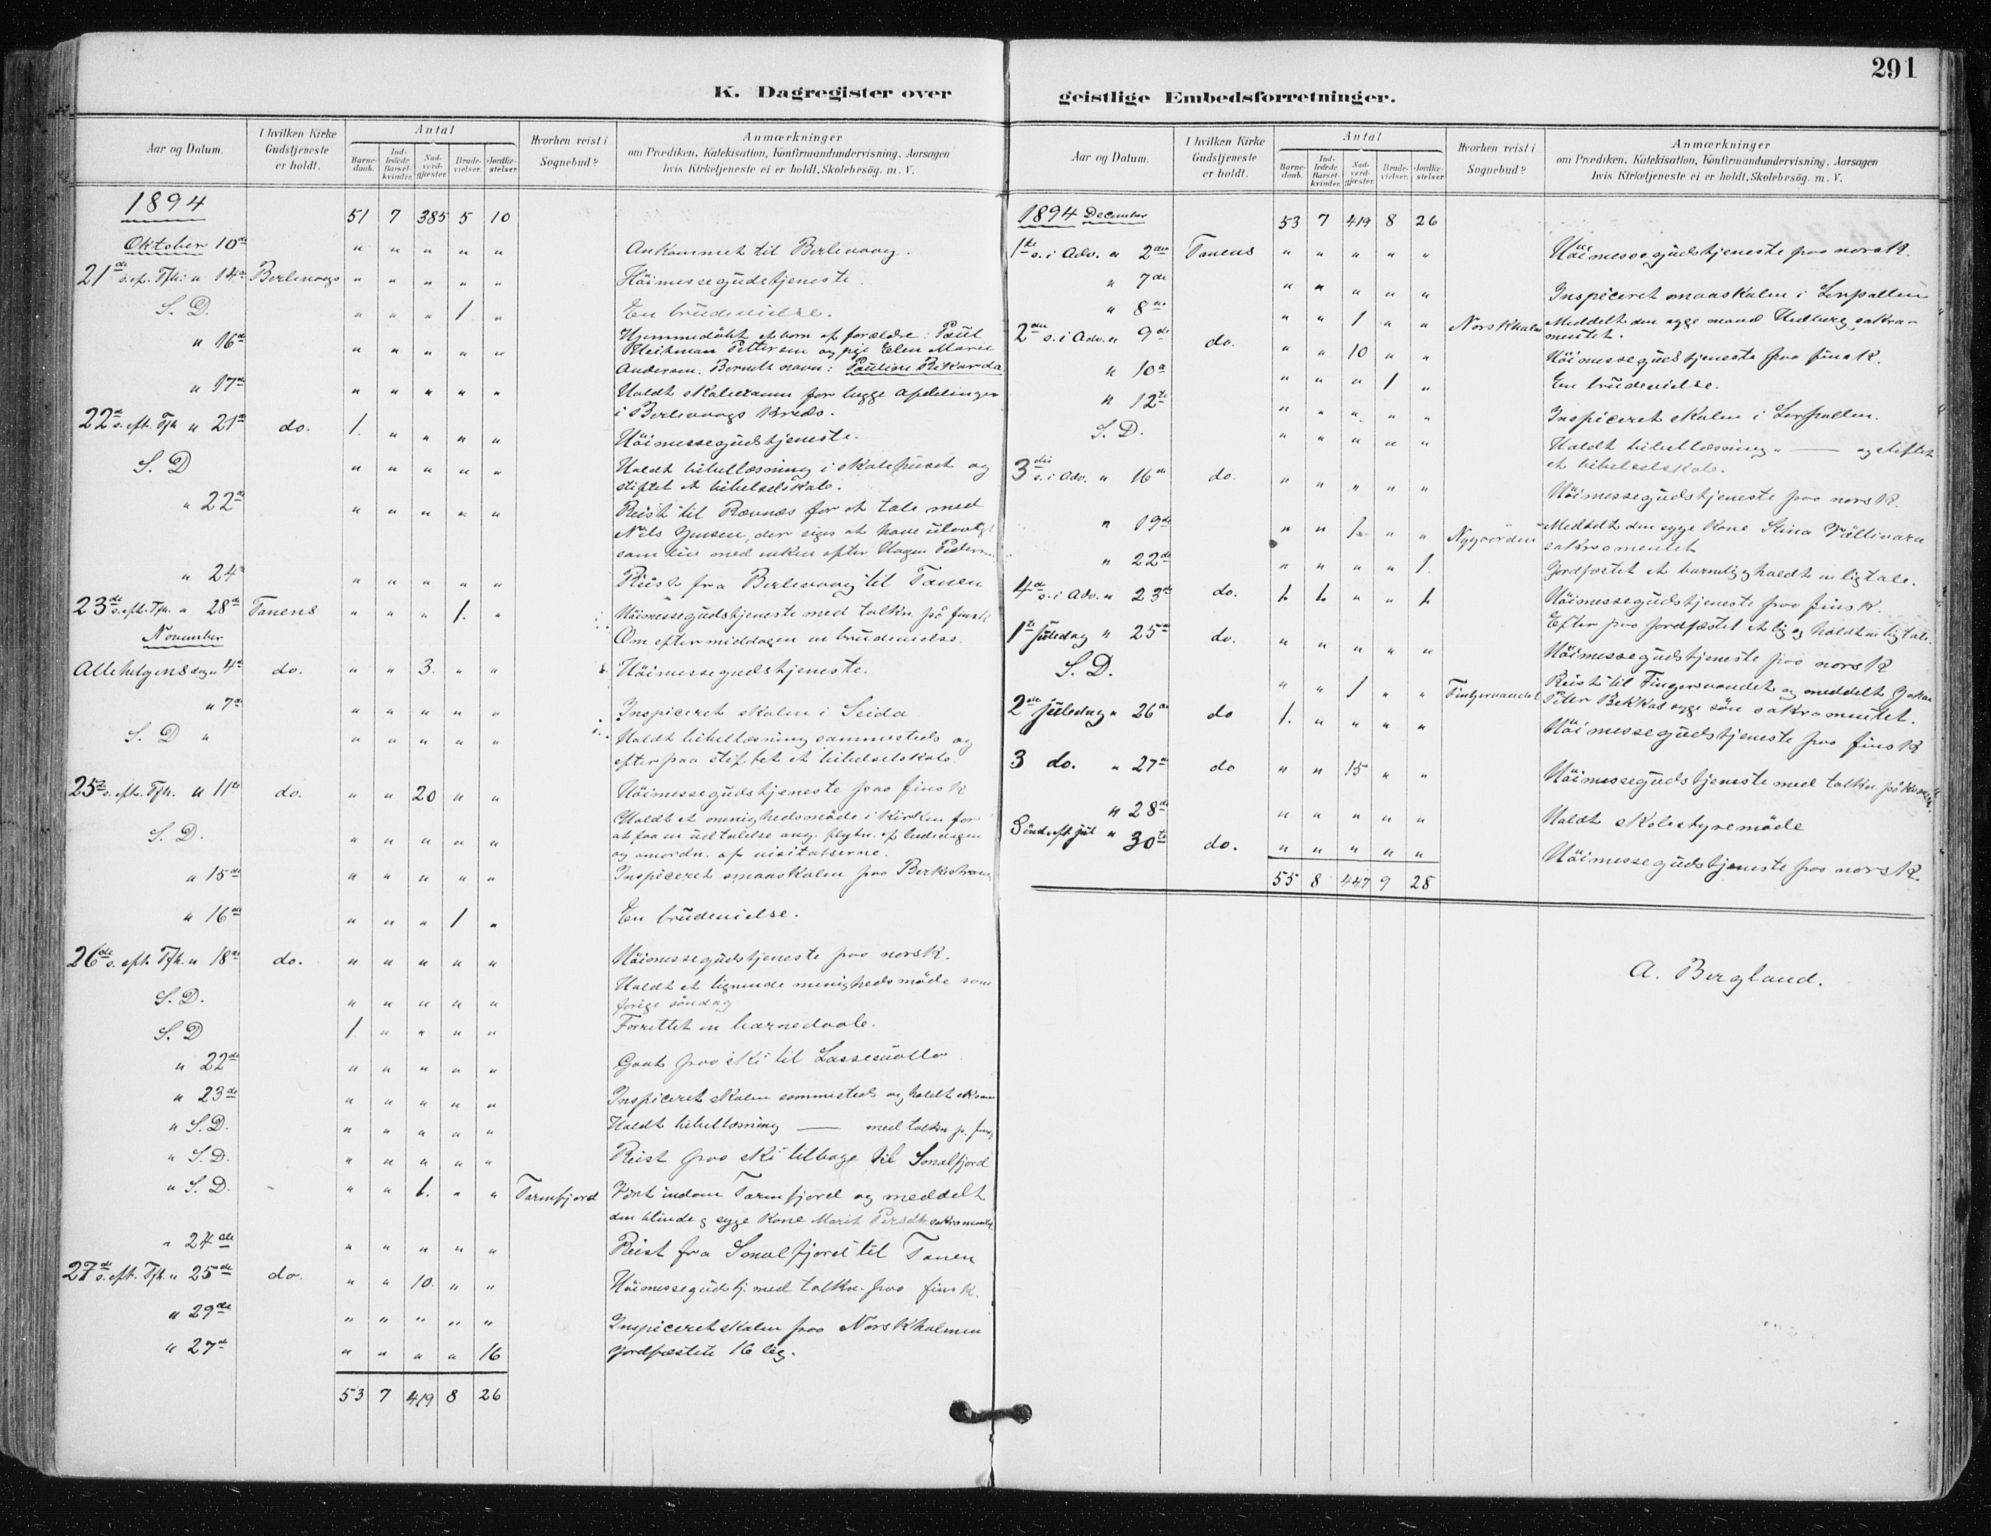 291
K. Dagregister over geistlige Embedsforretninger.
Aar og Datum.
I hvilken Kirke Gudstjeneste er holdt.
Antal
Barnedaab.
Indledede Barselkvinder.
Nadverdgjester.
Brudevielser.
Jordfæstelser.
Hvorhen reist i Sognebud?
Anmærkninger
om Prædiken, Katekisation, Konfirmandundervisning, Aarsagen
hvis Kirketjeneste ei er holdt, Skolebesøg. m. V.
1894 51 7 385 5 10
Oktober 10de " " " " " Ankommet til Berlevaag.
21de s. ef. Tfh. " 14de Berlevaags " " " " " Høimessegudstjeneste.
S. D. " " " 1 " En brudevielse.
" 16de " " " " " Hjemmedøbt et barn af forældre: Paul
Bleikman Pettersen og pge Elen Marie
Andersen. Barnets navn: Pauline Rikarda
" 17de " " " " " Holdt skoleexamen for begge afdelinger
i Berlevaags kreds.
22de s. eft. Tfh " 21de do. 1. " " " " Høimessegudstjeneste.
S. D " " " " " Holdt bibellæsning i skolehuset og
stiftet et bibelselskab.
" 22de " " " " " Reist til Ravnæs for at tale med
Nils Jensen, der siges at have
som med enken efter Hagen
" 24de " " " " " Reist fra Berlevaag til Tanen
23de s. eft. Tfh. " 28de Tanens " " " 1. " Høimessegudstjeneste med tolkn. på finsk
Om eftermiddagen en brudevielse.
November
Allehelgensdag " 4de do. " " 3. " " Høimessegudstjeneste.
" 7de " " " " " Inspiceret skolen i Seida
S. D " " " " " " Holdt bibellæsning sammesteds og
efterpaa stiftet et bibelselskab.
25de s. eft. Tfh. " 11te do. " " 20 " " Høimessegudstjeneste paa finsk
S. D. " " " " " Holdt et menighedsmøde i kirken for
at faa en udtalelse ang. flytn. af bededagen
og omordn. af visitatserne.
" 15de " " " " " Inspiceret smaaskolen paa Berkestrand
" 16de " " " 1 " En brudevielse.
26de s. eft. Tfh. " 18de do. " " " " " Høimessegudstjeneste paa norsk.
S. D. " " " " " Holdt et lignende menighedsmøde som
forige søndag
S. D 1 " " " " Forrettet en barnedaab.
" 22de " " " " " Gaat paa ski til
" 23de " " " " " Inspiceret skolen sammesteds og holdt
" S. D. " " " " " Holdt bibellæsning — med tolkn p. finsk
" S. D. " " " " " Reist paa ski tilbage til Smalfjord
" S. D. " " 1. " " Tarmfjord indom Tarmfjord og meddelt
den blinde og syge kone Marit sakramentet
" 24de " " " " " Reist fra Smalfjord til Tanen
27de s. eft. Tfh. " 25de do. " " 10. " " Høimessegudstj. med tolkn. paa finsk.
" 29de " " " " " Inspiceret skolen paa Norskholmen
" 27de " " " " 16 Jordfæstete 16 lig.
53 7 419 8 26
Aar og Datum.
I hvilken Kirke Gudstjeneste er holdt.
Antal
Barnedaab.
Indledede Barselkvinder.
Nadverdgjester.
Brudevielser.
Jordfæstelser.
Hvorhen reist i Sognebud?
Anmærkninger
om Prædiken, Katekisation, Konfirmandundervisning, Aarsagen
hvis Kirketjeneste ei er holdt, Skolebesøg. m. V.
1894 December 53 7 419 8 26
1te s. i Adv. " 2den Tanens " " " " " Høimessegudstjeneste paa norsk.
" 7de " " " " " Inspiceret smaaskolen i Lerpollen
" 8de " " 1 " " Norskholm Meddelt den syge mand Hedberg sakramentet.
2den s. i Adv. " 9de do. " " 10 " " Høimessegudstjeneste paa finsk.
" 10de " " " 1 " En brudevielse.
" 12te " " " " " Inspiceret skolen i Lerpollen.
S. D. " " " " " Holdt bibellæsning " — og stiftet
et bibelselskab.
3die s. i Adv. " 16de do. " " " " " Høimessegudstjeneste paa norsk.
" 19de " " 1 " " Meddelt den syge kone Stina Vällivara
sakramentet
" 22de " " " " 1. Jordfæstet et barnelig, holdt en ligtale.
4de s. i Adv. " 23de do. 1. 1. " " 1. Høimessegudstjeneste paa finsk.
Efter paa jordfæstet et lig og holdt en ligtale.
1te juledag " 25de do. " " " " " Høimessegudstjeneste paa norsk
S. D. " " 1 " " Fingervandet Reist til Fingervandet og meddelt
Peter Bekkas syge søn sakramentet.
2den juledag " 26de do 1. " " " " Høimessegudstjeneste paa finsk
3 do. " 27de do " " 15 " " Høimessegudstjeneste med tolkn. på
" 28de " " " " " Holdt skolestyremøde
Sønd. eft jul " 30te do. " " " " " Høimessegudstjeneste paa norsk.
55 8 447 9 28
A. Bergland.